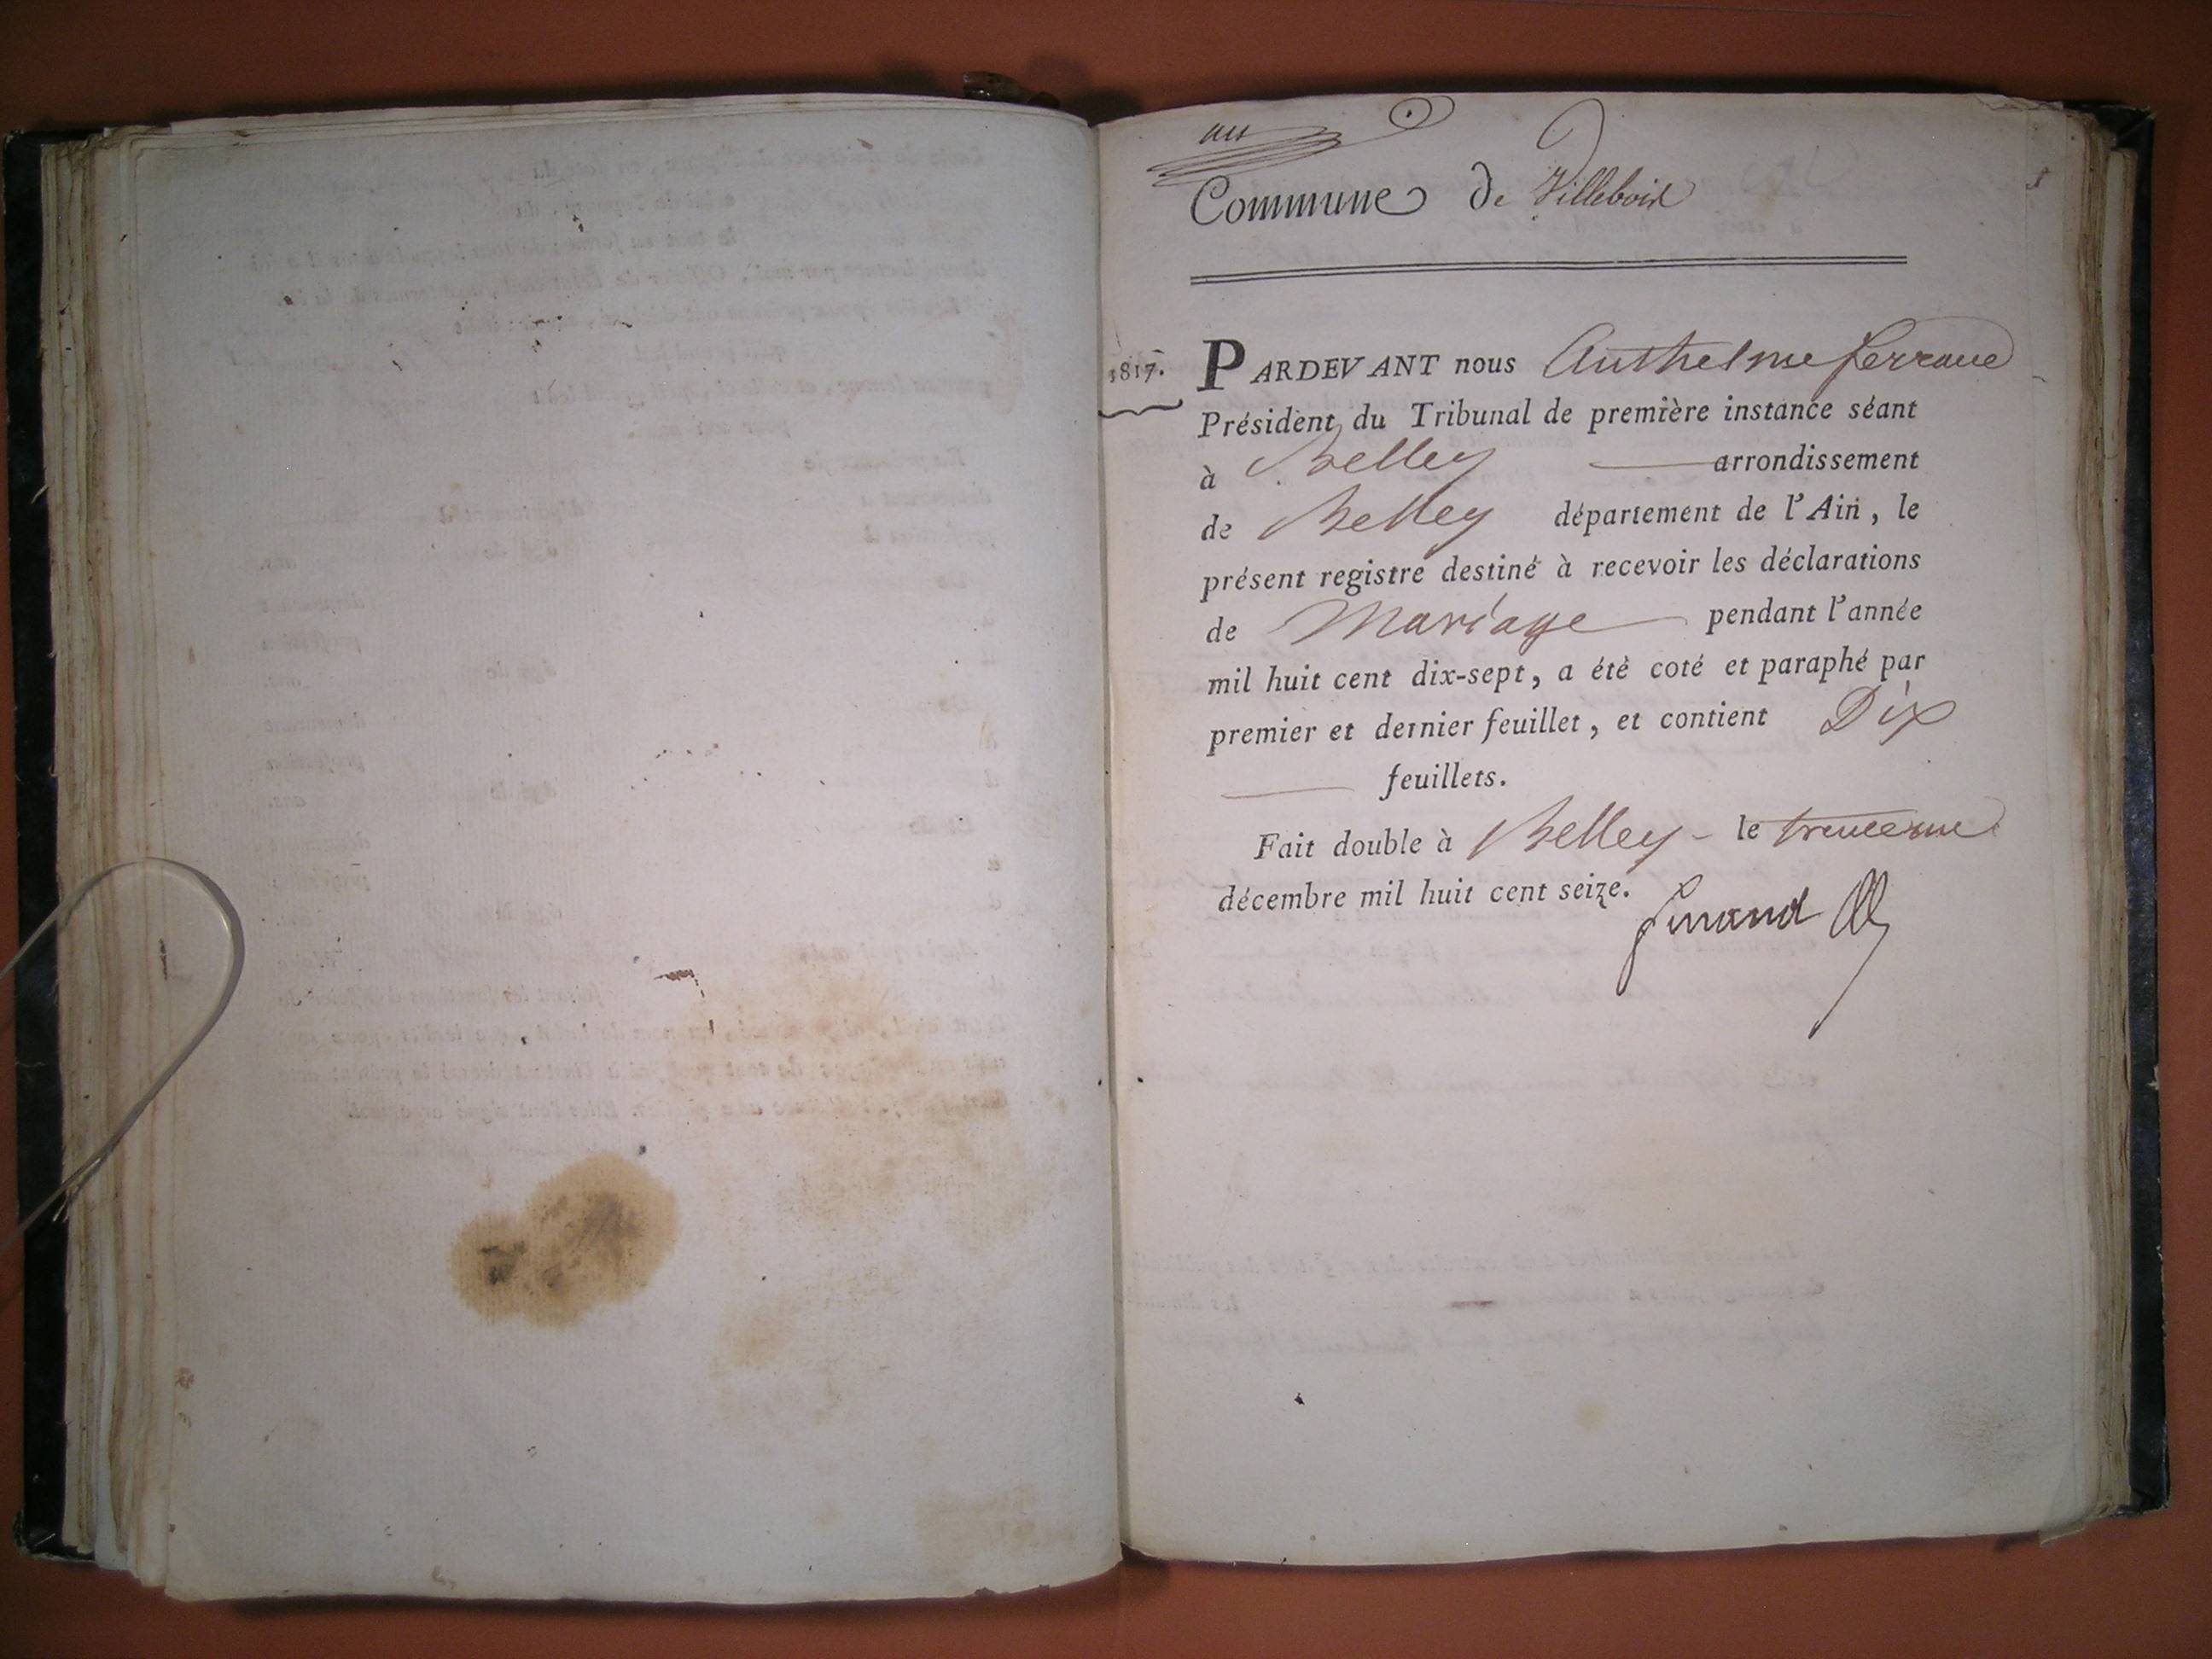 Commune de Villebois
1817.
PARDEVANT nous Anthelme ferrand
Président du Tribunal de première instance séant
à Belley arrondissement
de Belley département de l'Ain, le
présent registre destiné à recevoir les déclarations
de Mariage pendant l'année
mil huit cent dix-sept, a été coté et paraphé par
premier et dernier feuillet, et contient Dix
feuillets.
Fait double à Belley - le
décembre mil huit cent seize.